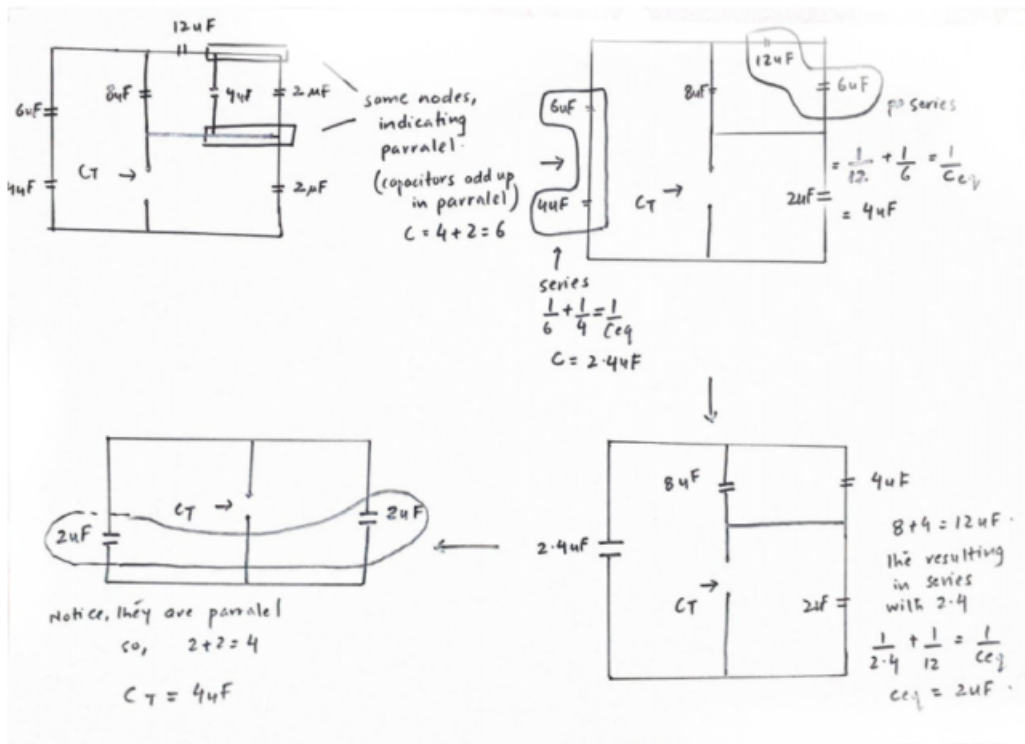 12uF
6uF
8uF
4uF
2uF
4uF
CT →
2uF
same nodes,
indicating
parralel.
(capacitors add up
in parralel)
C = 4 + 2 = 6
12uF
6uF
8uF
6uF
series
= 1/12 + 1/6 = 1/Ceq
= 4uF
4uF
CT →
2uF
series
1/6 + 1/4 = 1/Ceq
C = 2.4uF
8uF
4uF
2.4uF
CT →
2uF
8+4 = 12uF.
The resulting
in series
with 2.4
1/2.4 + 1/12 = 1/Ceq
Ceq = 2uF.
CT →
2uF
2uF
Notice, they are parralel
so, 2+2 = 4
CT = 4uF